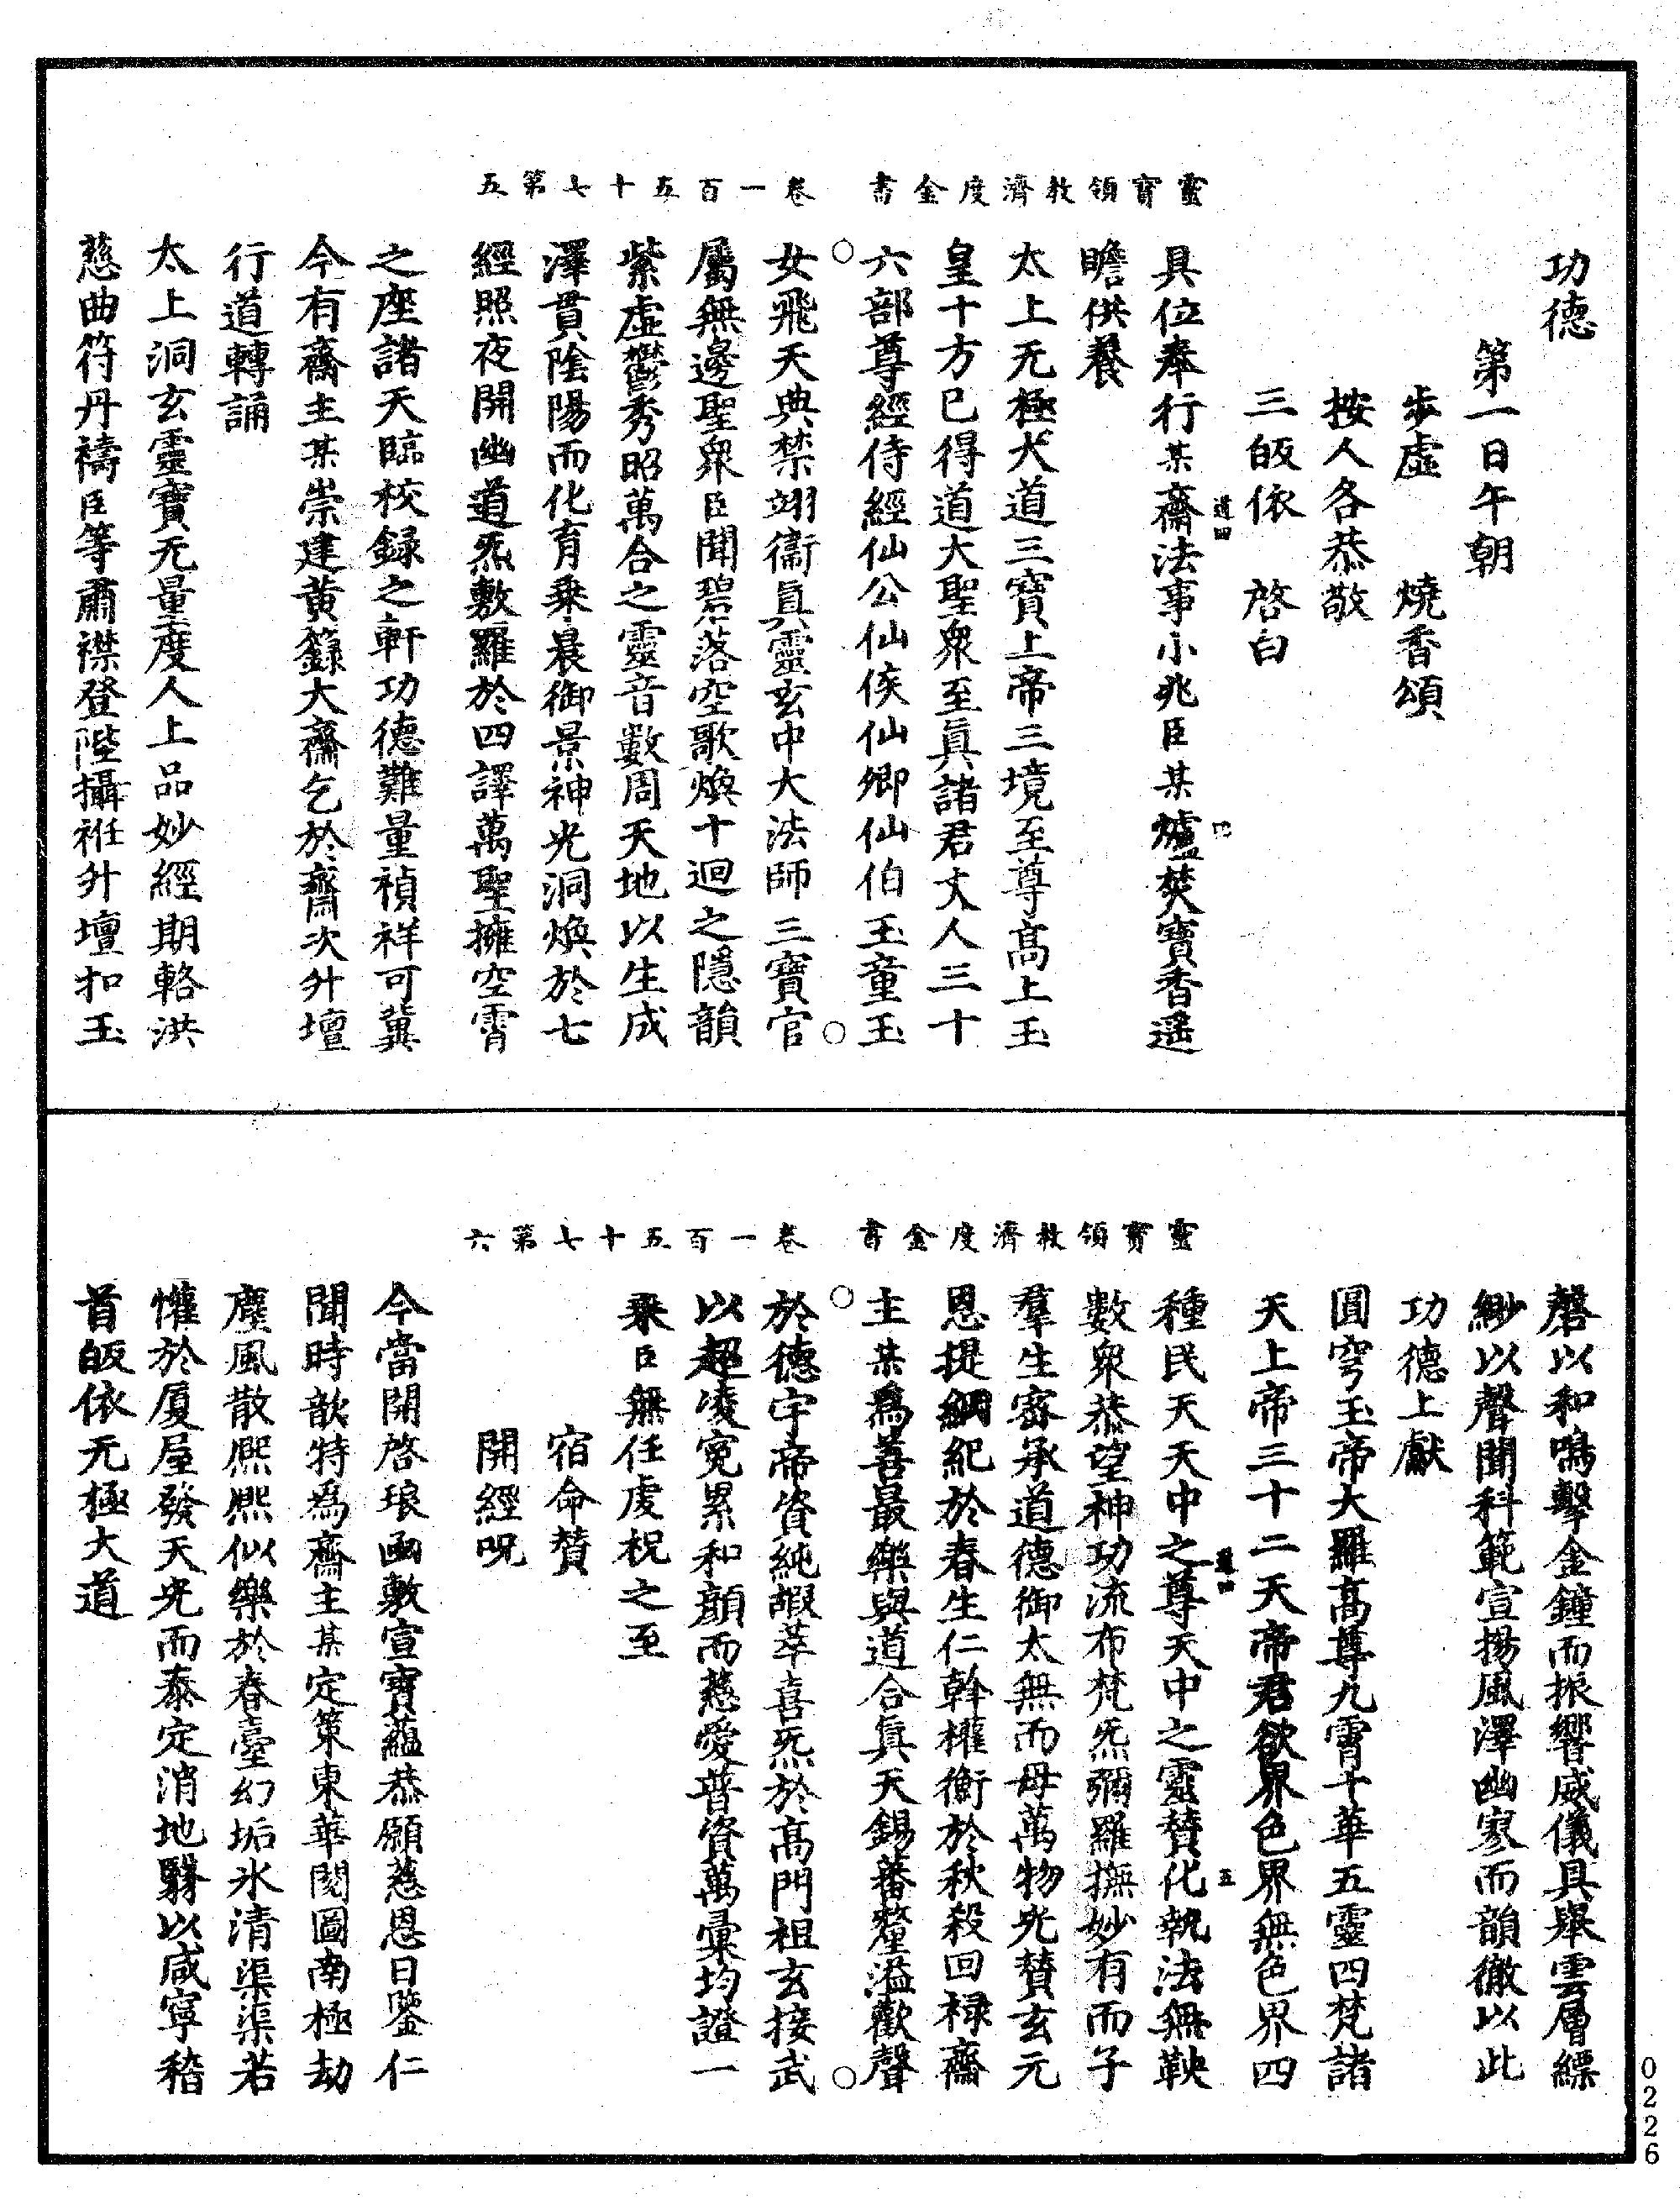 功德
第一日午朝
步虛　燒香頌
按人各恭敬
三皈依　啓白
具位奉行某齋法事小兆臣某爐焚寶香遥
瞻供養
太上无極大道三寶上帝三境至尊高上玉
皇十方已得道大聖衆至眞諸君丈人三十
六部尊經侍經仙公仙侯仙卿仙伯玉童玉
女飛天典禁翊衞眞靈玄中大法師三寶官
屬無邊聖衆臣聞碧落空歌煥十迴之隱韻
紫虛鬱秀昭萬合之靈音數周天地以生成
澤貫陰陽而化育乗晨御景神光洞煥於七
經照夜開幽道炁敷羅於四譯萬聖擁空霄
之座諸天臨校録之軒功德難量禎祥可冀
今有齋主某崇建黃籙大齋乞於齋次升壇
行道轉誦
太上洞玄靈寶无量度人上品妙經期輅洪
慈曲符丹禱臣等肅襟登陛攝袵升壇扣玉
靈寶領教濟度金書　卷一百五十七第五
道四
磬以和鳴擊金鐘而振響威儀具舉雲層縹
緲以聲聞科範宣揚風澤幽寥而韻徹以此
功德上獻
圓穹玉帝大羅高尊九霄十華五靈四梵諸
天上帝三十二天帝君欲界色界無色界四
種民天天中之尊天中之靈贊化執法無鞅
數衆恭望神功流布梵炁彌羅撫妙有而子
羣生密承道德御太無而母萬物光贊玄元
恩提綱紀於春生仁幹權衡於秋殺回禄齋
主某爲善最樂與道合眞天錫蕃釐溢歡聲
於德宇帝資純嘏萃喜炁於高門祖玄接武
以超凌寃累和顔而慈愛普資萬彙均證一
乗臣無任虔祝之至
宿命贊
開經呪
今當開啓琅函敷宣寶蘊恭願慈恩日鑒仁
聞時歆特為齋主某定策東華閱圖南極劫
塵風散熙熙似樂於春臺幻垢氷清渠渠若
懽於厦屋發天光而泰定消地驛以咸寧稽
首皈依无極大道
靈寶領教濟度金書　卷一百五十七第六
道四
五
0226